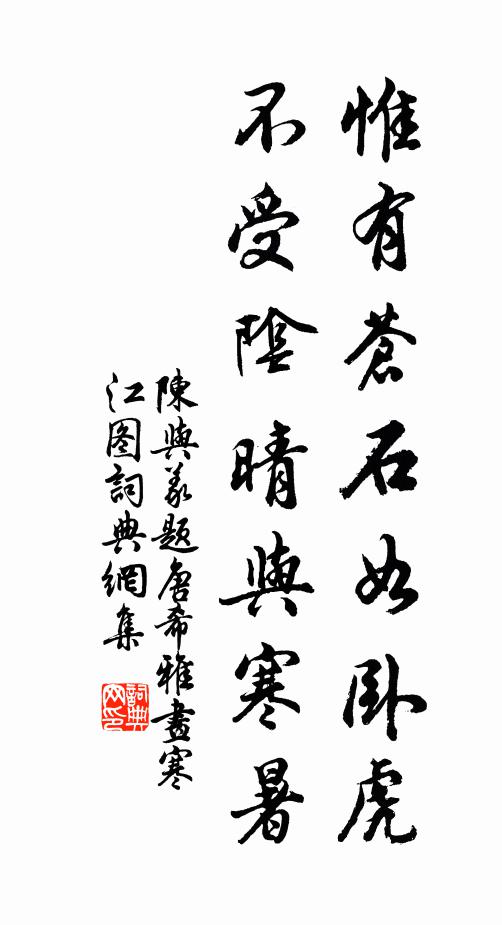 惟有蒼石如卧虎
不受陰晴與寒暑
陳與義題唐希雅畫寒
江图詞典網集
詞典网印